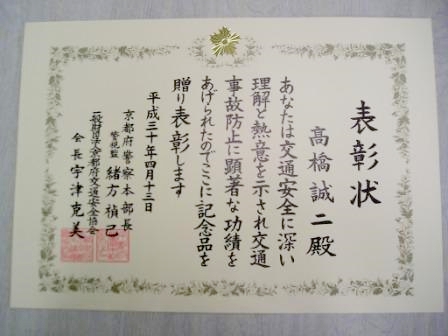 表彰状
高橋誠二殿
あなたは交通安全に深い
理解と熱意を示され交通
事故防止に顕著な功績を
あげられたのでここに記念品を
贈り表彰します
平成三十年四月十三日
京都府警察本部長
警視監 緒方禎己
一般財団法人京都府交通安全協会
会長宇津克美